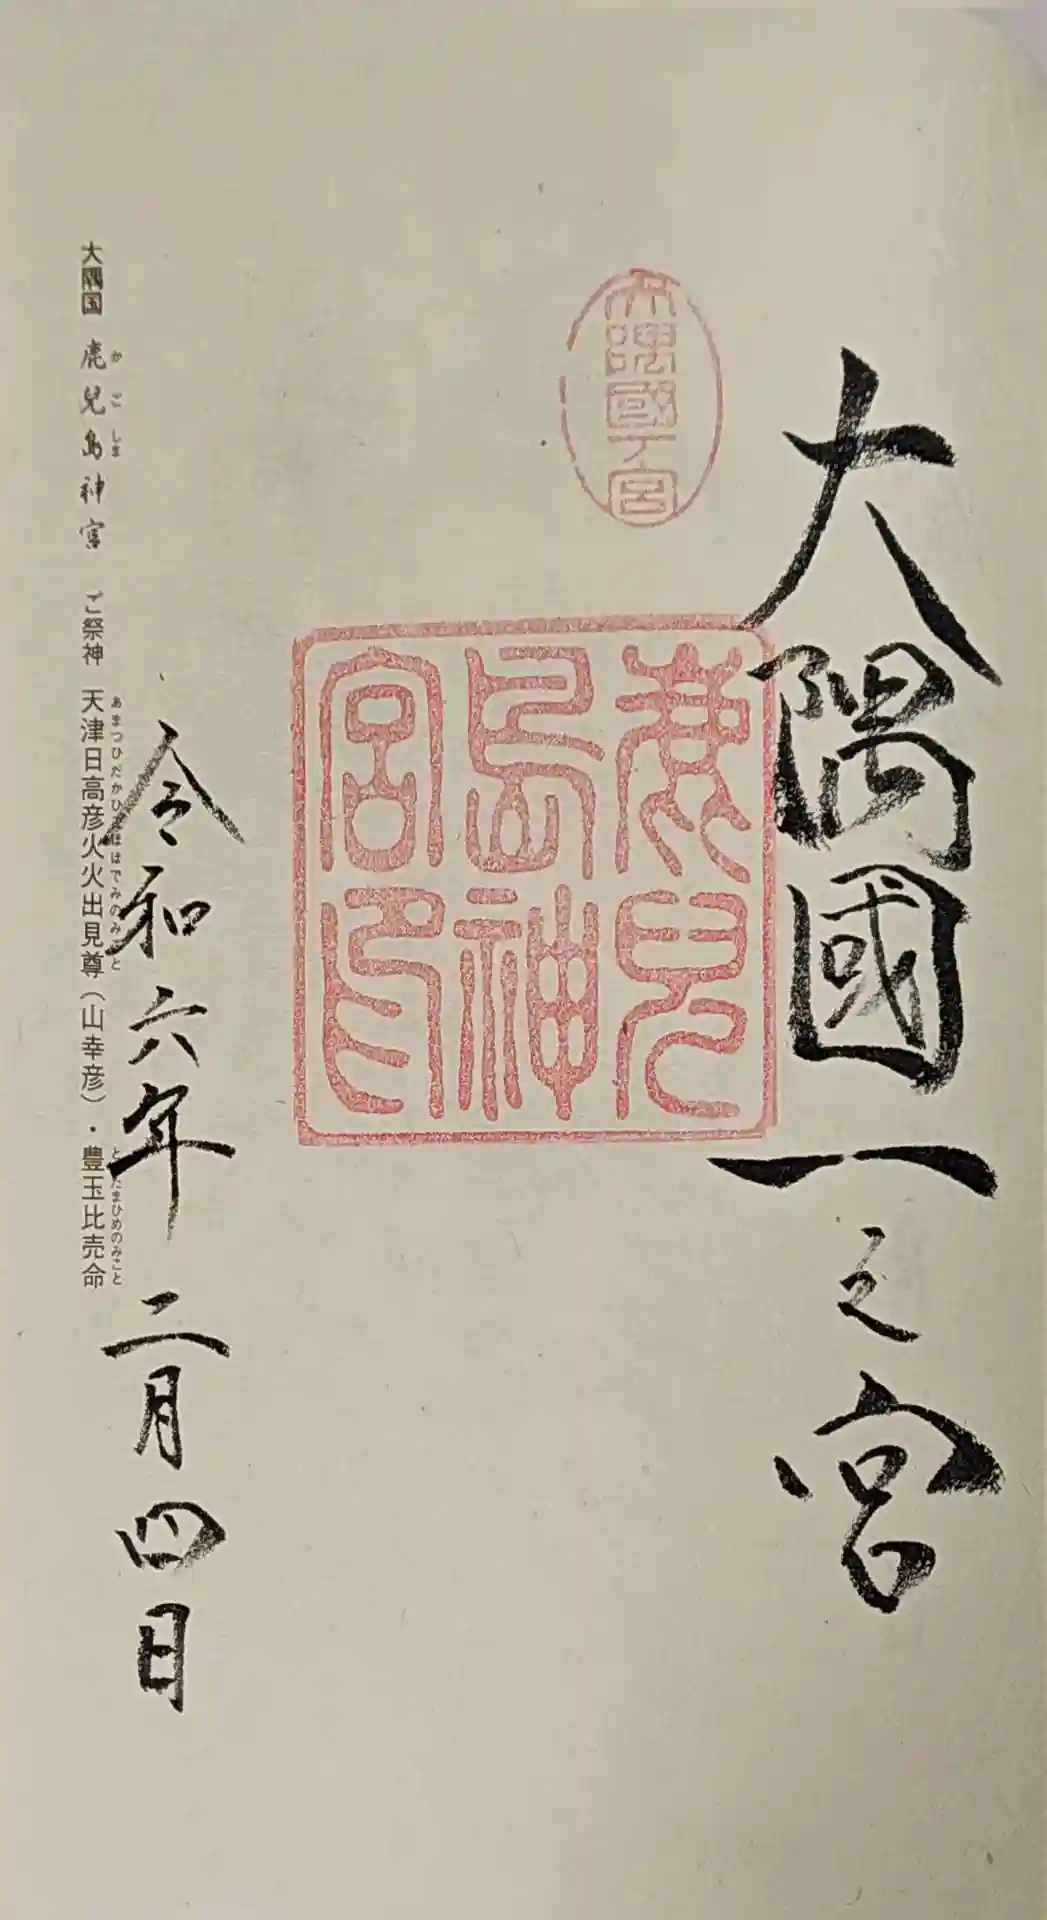 大隅國一之宮
大隅國一宮
鹿兒
島神
宮印
令和六年二月四日
大隅国 鹿兒島神宮 ご祭神 天津日高彦火火出見尊（山幸彦）・豊玉比売命
かごしま あまつひだかひこほほでみのみこと とよたまひめのみこと